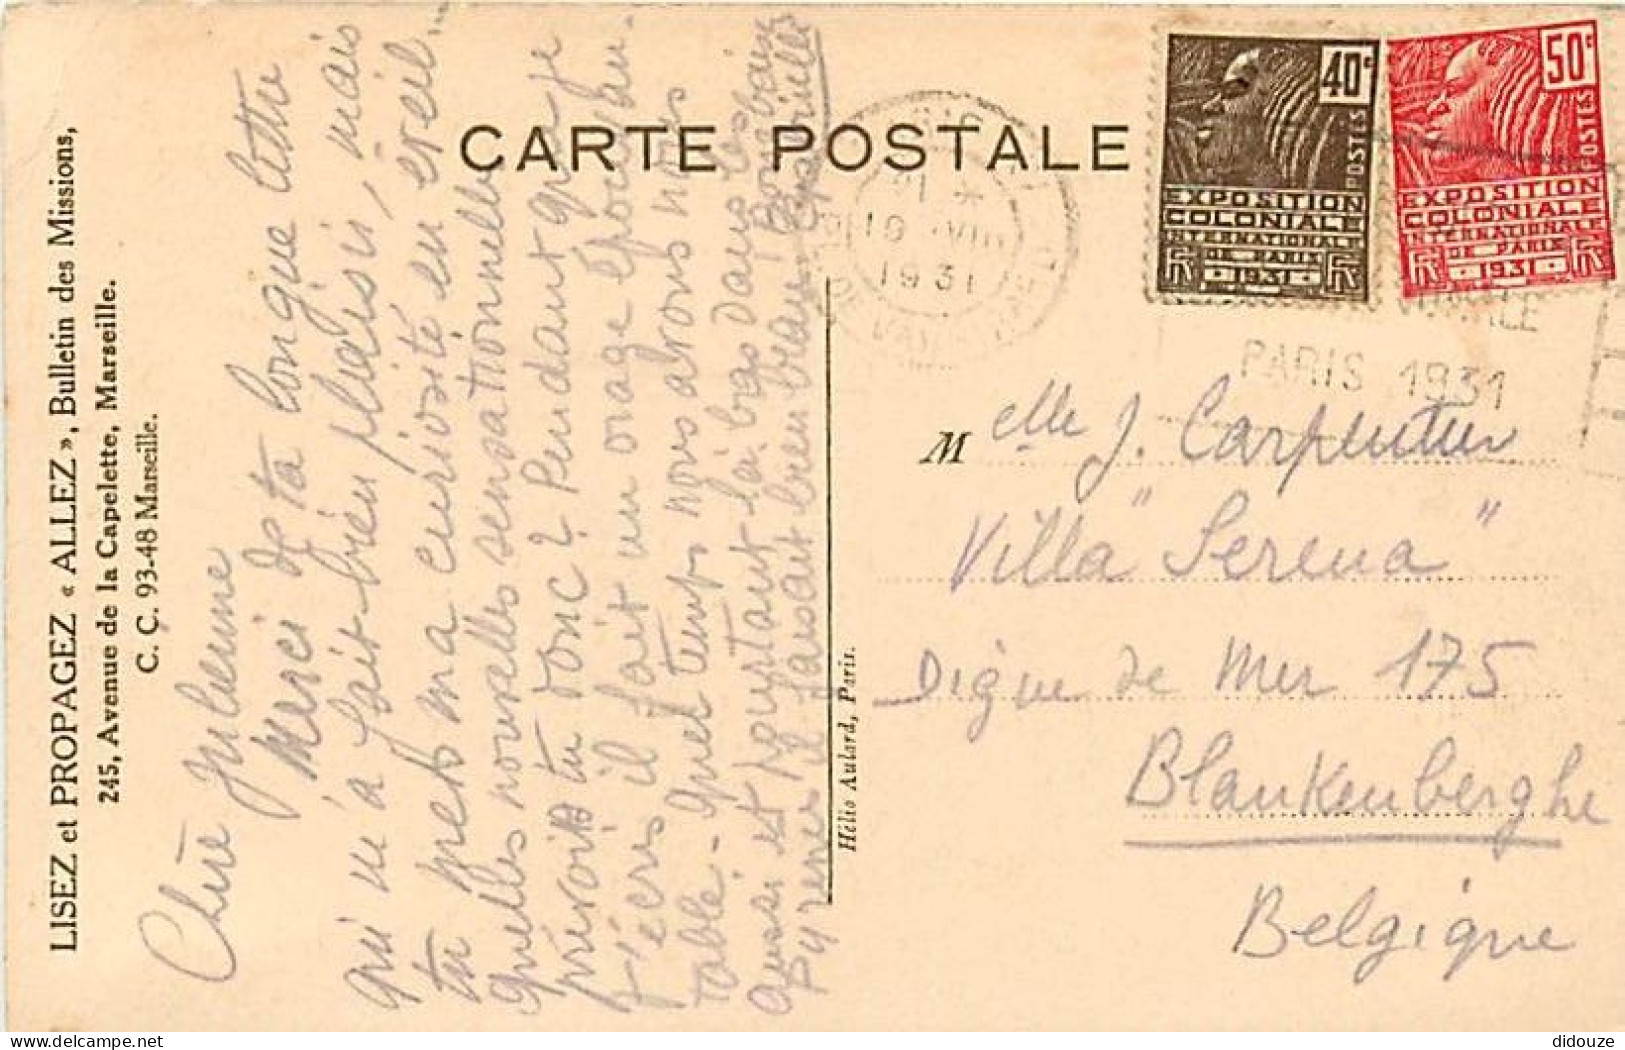 LISEZ et PROPAGEZ « ALLEZ », Bulletin des Missions,
245, Avenue de la Capelette, Marseille.
C. C. 93-48 Marseille.
CARTE POSTALE
Chère Julienne
Merci de ta longue lettre
qui m'a fait bien plaisir, mais
tu mets ma curiosité en éveil...
quelles nouvelles sensationnelles
prévois tu donc ? Pendant que je
t'écris il fait un orage épouvan-
table - quel temps nous avons nous
aussi et pourtant là-bas dans les basses
Pyrénées il faisait bien beau. Bons baisers
Hélio Aulard, Paris.
40c
POSTES
EXPOSITION
COLONIALE
INTERNATIONALE
DE PARIS
RF 1931 RF
50c
POSTES
EXPOSITION
COLONIALE
INTERNATIONALE
DE PARIS
RF 1931 RF
19 VIII
1931
PARIS 1931
Melle J. Carpentier
Villa "Serena"
Digue de Mer 175
Blankenberghe
Belgique
didouze